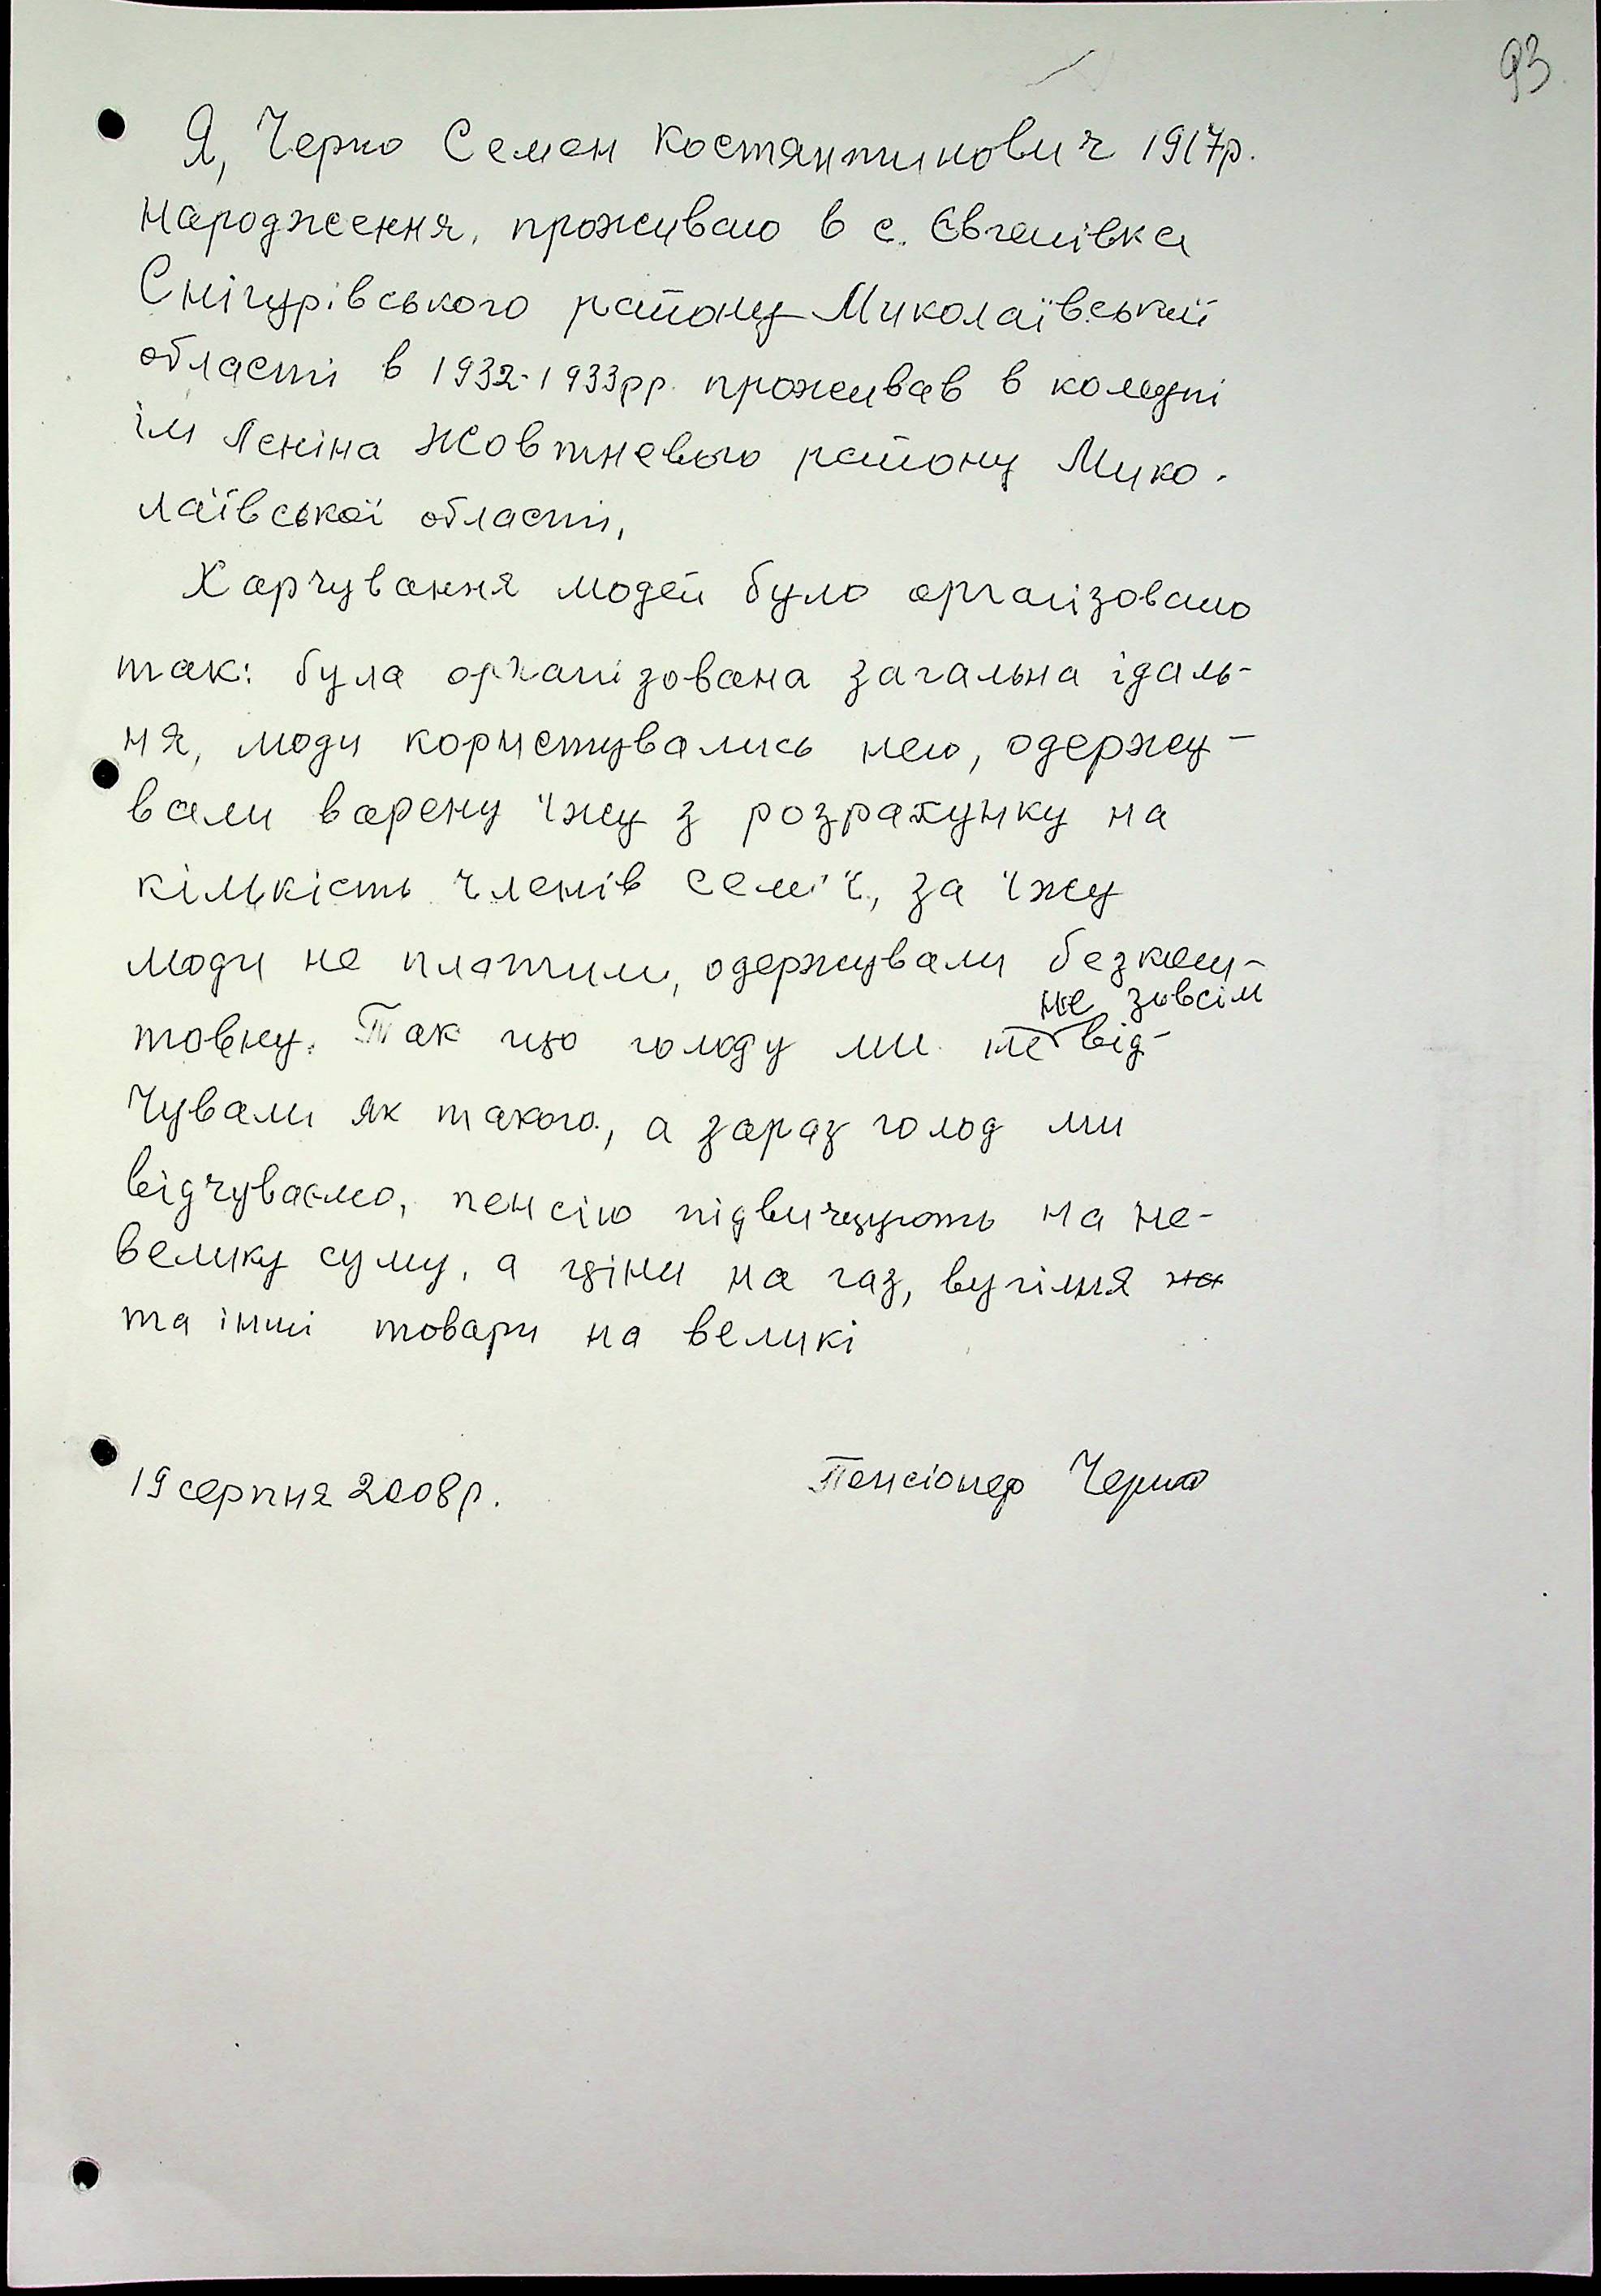 93
Я, Черно Семен Костянтинович 1917р.
народження, проживаю в с. Євгенівка
Снігурівського району Миколаївській
області в 1932-1933рр. проживав в комуні
ім Леніна Жовтневого району Мико-
лаївської області,
Харчування людей було організовано
так: була організована загальна їдаль-
ня, люди користувались нею, одержу-
вали варену їжу з розрахунку на
кількість членів сем'ї, за їжу
люди не платили, одержували безкош-
не зовсім
товну. Так що голоду ми не від-
чували як такого, а зараз голод ми
відчуваємо, пенсію підвищують на не-
велику суму, а ціни на газ, вугілля на
та інші товари на великі
19 серпня 2008р. Пенсіонер Черно